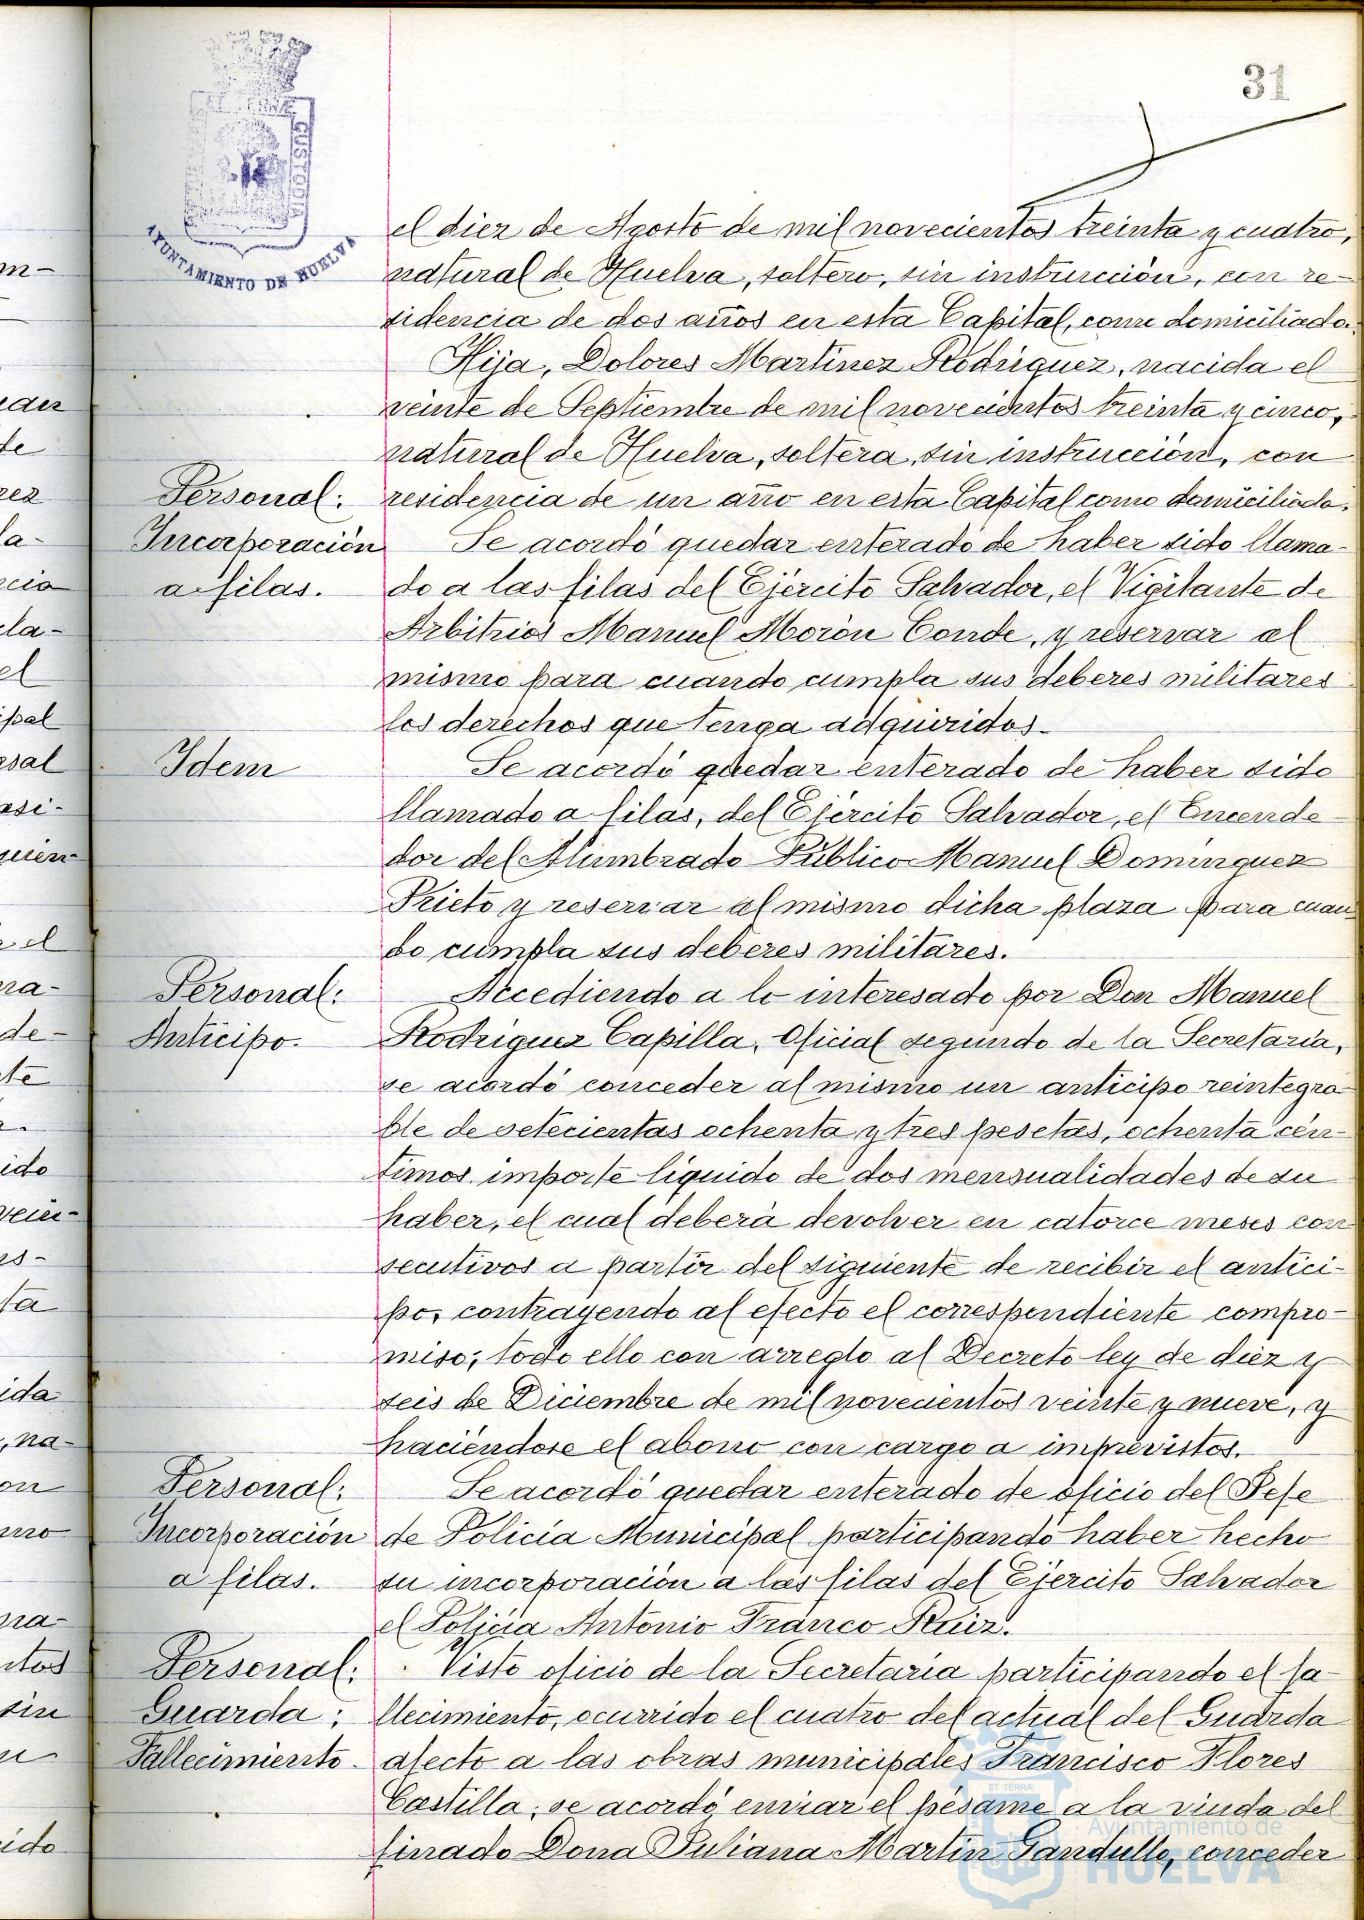 31
ET TERRÆ CUSTODIA
AYUNTAMIENTO DE HUELVA
el diez de Agosto de mil novecientos treinta y cuatro,
natural de Huelva, soltero, sin instrucción, con re-
sidencia de dos años en esta Capital, como domiciliado.
Hija, Dolores Martínez Rodríguez, nacida el
veinte de Septiembre de mil novecientos treinta y cinco,
natural de Huelva, soltera, sin instrucción, con
residencia de un año en esta Capital como domiciliada.
Personal:
Incorporación
a filas.
Se acordó quedar enterado de haber sido llama-
do a las filas del Ejército Salvador, el Vigilante de
Arbitrios Manuel Morón Conde, y reservar al
mismo para cuando cumpla sus deberes militares
los derechos que tenga adquiridos.
Idem
Se acordó quedar enterado de haber sido
llamado a filas, del Ejército Salvador, el Encende-
dor del Alumbrado Público Manuel Domínguez
Prieto y reservar al mismo dicha plaza para cuan-
do cumpla sus deberes militares.
Personal:
Anticipo.
Accediendo a lo interesado por Don Manuel
Rodríguez Capilla, Oficial segundo de la Secretaría,
se acordó conceder al mismo un anticipo reintegra-
ble de setecientas ochenta y tres pesetas, ochenta cén-
timos, importe líquido de dos mensualidades de su
haber, el cual deberá devolver en catorce meses con
secutivos a partir del siguiente de recibir el antici-
po, contrayendo al efecto el correspondiente compro-
miso; todo ello con arreglo al Decreto ley de diez y
seis de Diciembre de mil novecientos veinte y nueve, y
haciéndose el abono con cargo a imprevistos.
Personal:
Incorporación
a filas.
Se acordó quedar enterado de oficio del Jefe
de Policía Municipal participando haber hecho
su incorporación a las filas del Ejército Salvador
el Policía Antonio Franco Ruiz.
Personal:
Guarda:
Fallecimiento.
Visto oficio de la Secretaría participando el fa-
llecimiento, ocurrido el cuatro del actual del Guarda
afecto a las obras municipales Francisco Flores
Castilla, se acordó enviar el pésame a la viuda del
finado Dona Juliana Martin Gandullo, conceder
ET TERRÆ
Ayuntamiento de
HUELVA